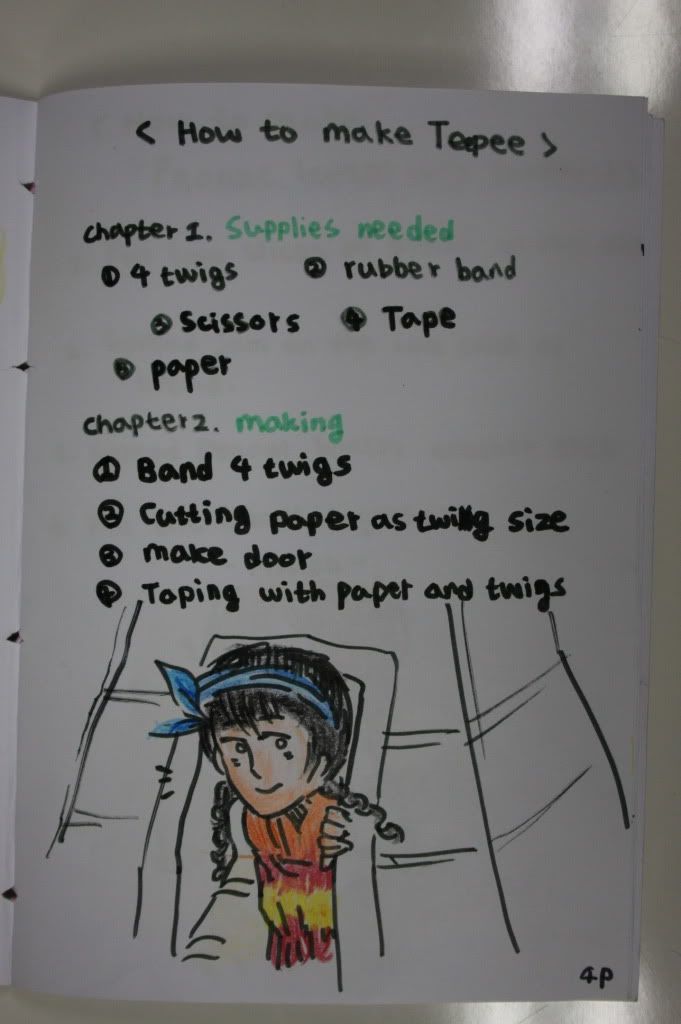 < How to make Teepee >
chapter 1. Supplies needed
① 4 twigs ② rubber band
③ Scissors ④ Tape
⑤ paper
chapter 2. making
① Band 4 twigs
② Cutting paper as twig size
③ make door
④ Taping with paper and twigs
4p